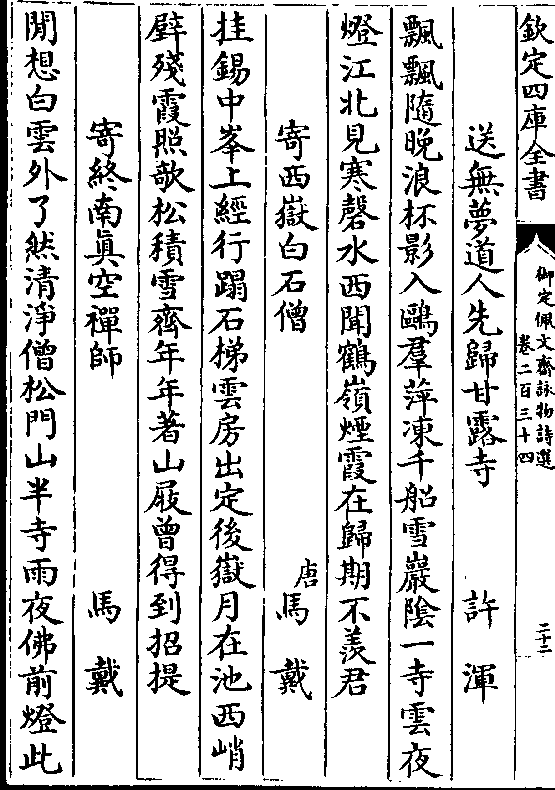 欽定四庫全書
御定佩文齋詠物詩選
卷二百三十四
二十二
送無夢道人先歸甘露寺
許渾
飄飄隨晚浪杯影入鷗羣萍凍千船雪巖陰一寺雲夜
燈江北見寒磬水西聞鶴嶺煙霞在歸期不羨君
寄西嶽白石僧
唐馬戴
挂錫中峯上經行蹋石梯雲房出定後嶽月在池西峭
壁殘霞照欹松積雪齊年年著山屐曾得到招提
寄終南眞空禪師
馬戴
閒想白雲外了然清淨僧松門山半寺雨夜佛前燈此